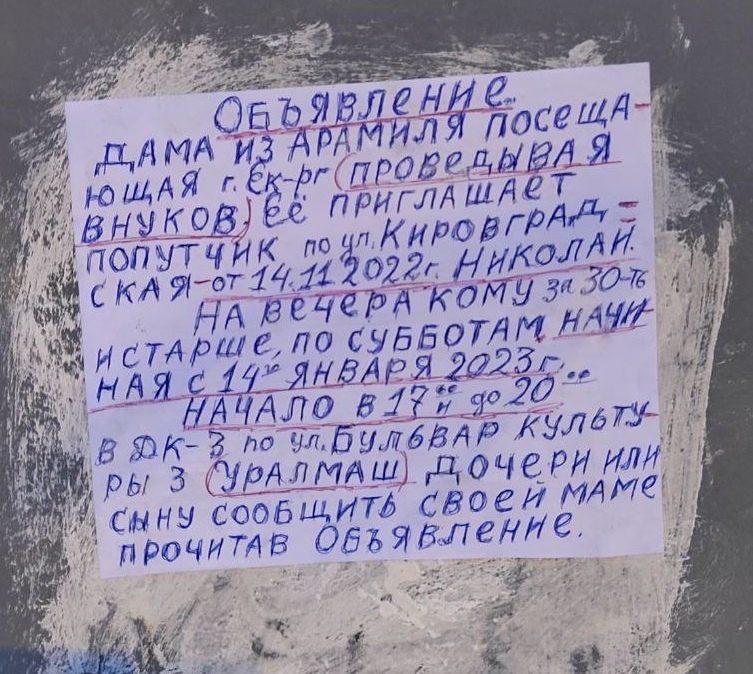 ОБЪЯВЛЕНИЕ.
ДАМА ИЗ АРАМИЛЯ ПОСЕЩА-
ЮЩАЯ г. Ек-рг (ПРОВЕДЫВАЯ
ВНУКОВ) ЕЁ ПРИГЛАШАЕТ
ПОПУТЧИК по ул. КИРОВГРАД=
СКАЯ-от 14.11.2022г. НИКОЛАЙ.
НА ВЕЧЕРА КОМУ за 30-ть
И СТАРШЕ, ПО СУББОТАМ, НАЧИ-
НАЯ с 14го ЯНВАРЯ 2023г.
НАЧАЛО В 17 00 ч до 20 00
В ДК-3 по ул. БУЛЬВАР КУЛЬТУ-
РЫ 3 (УРАЛМАШ) ДОЧЕРИ ИЛИ
СЫНУ СООБЩИТЬ СВОЕЙ МАМЕ
ПРОЧИТАВ ОБЪЯВЛЕНИЕ.